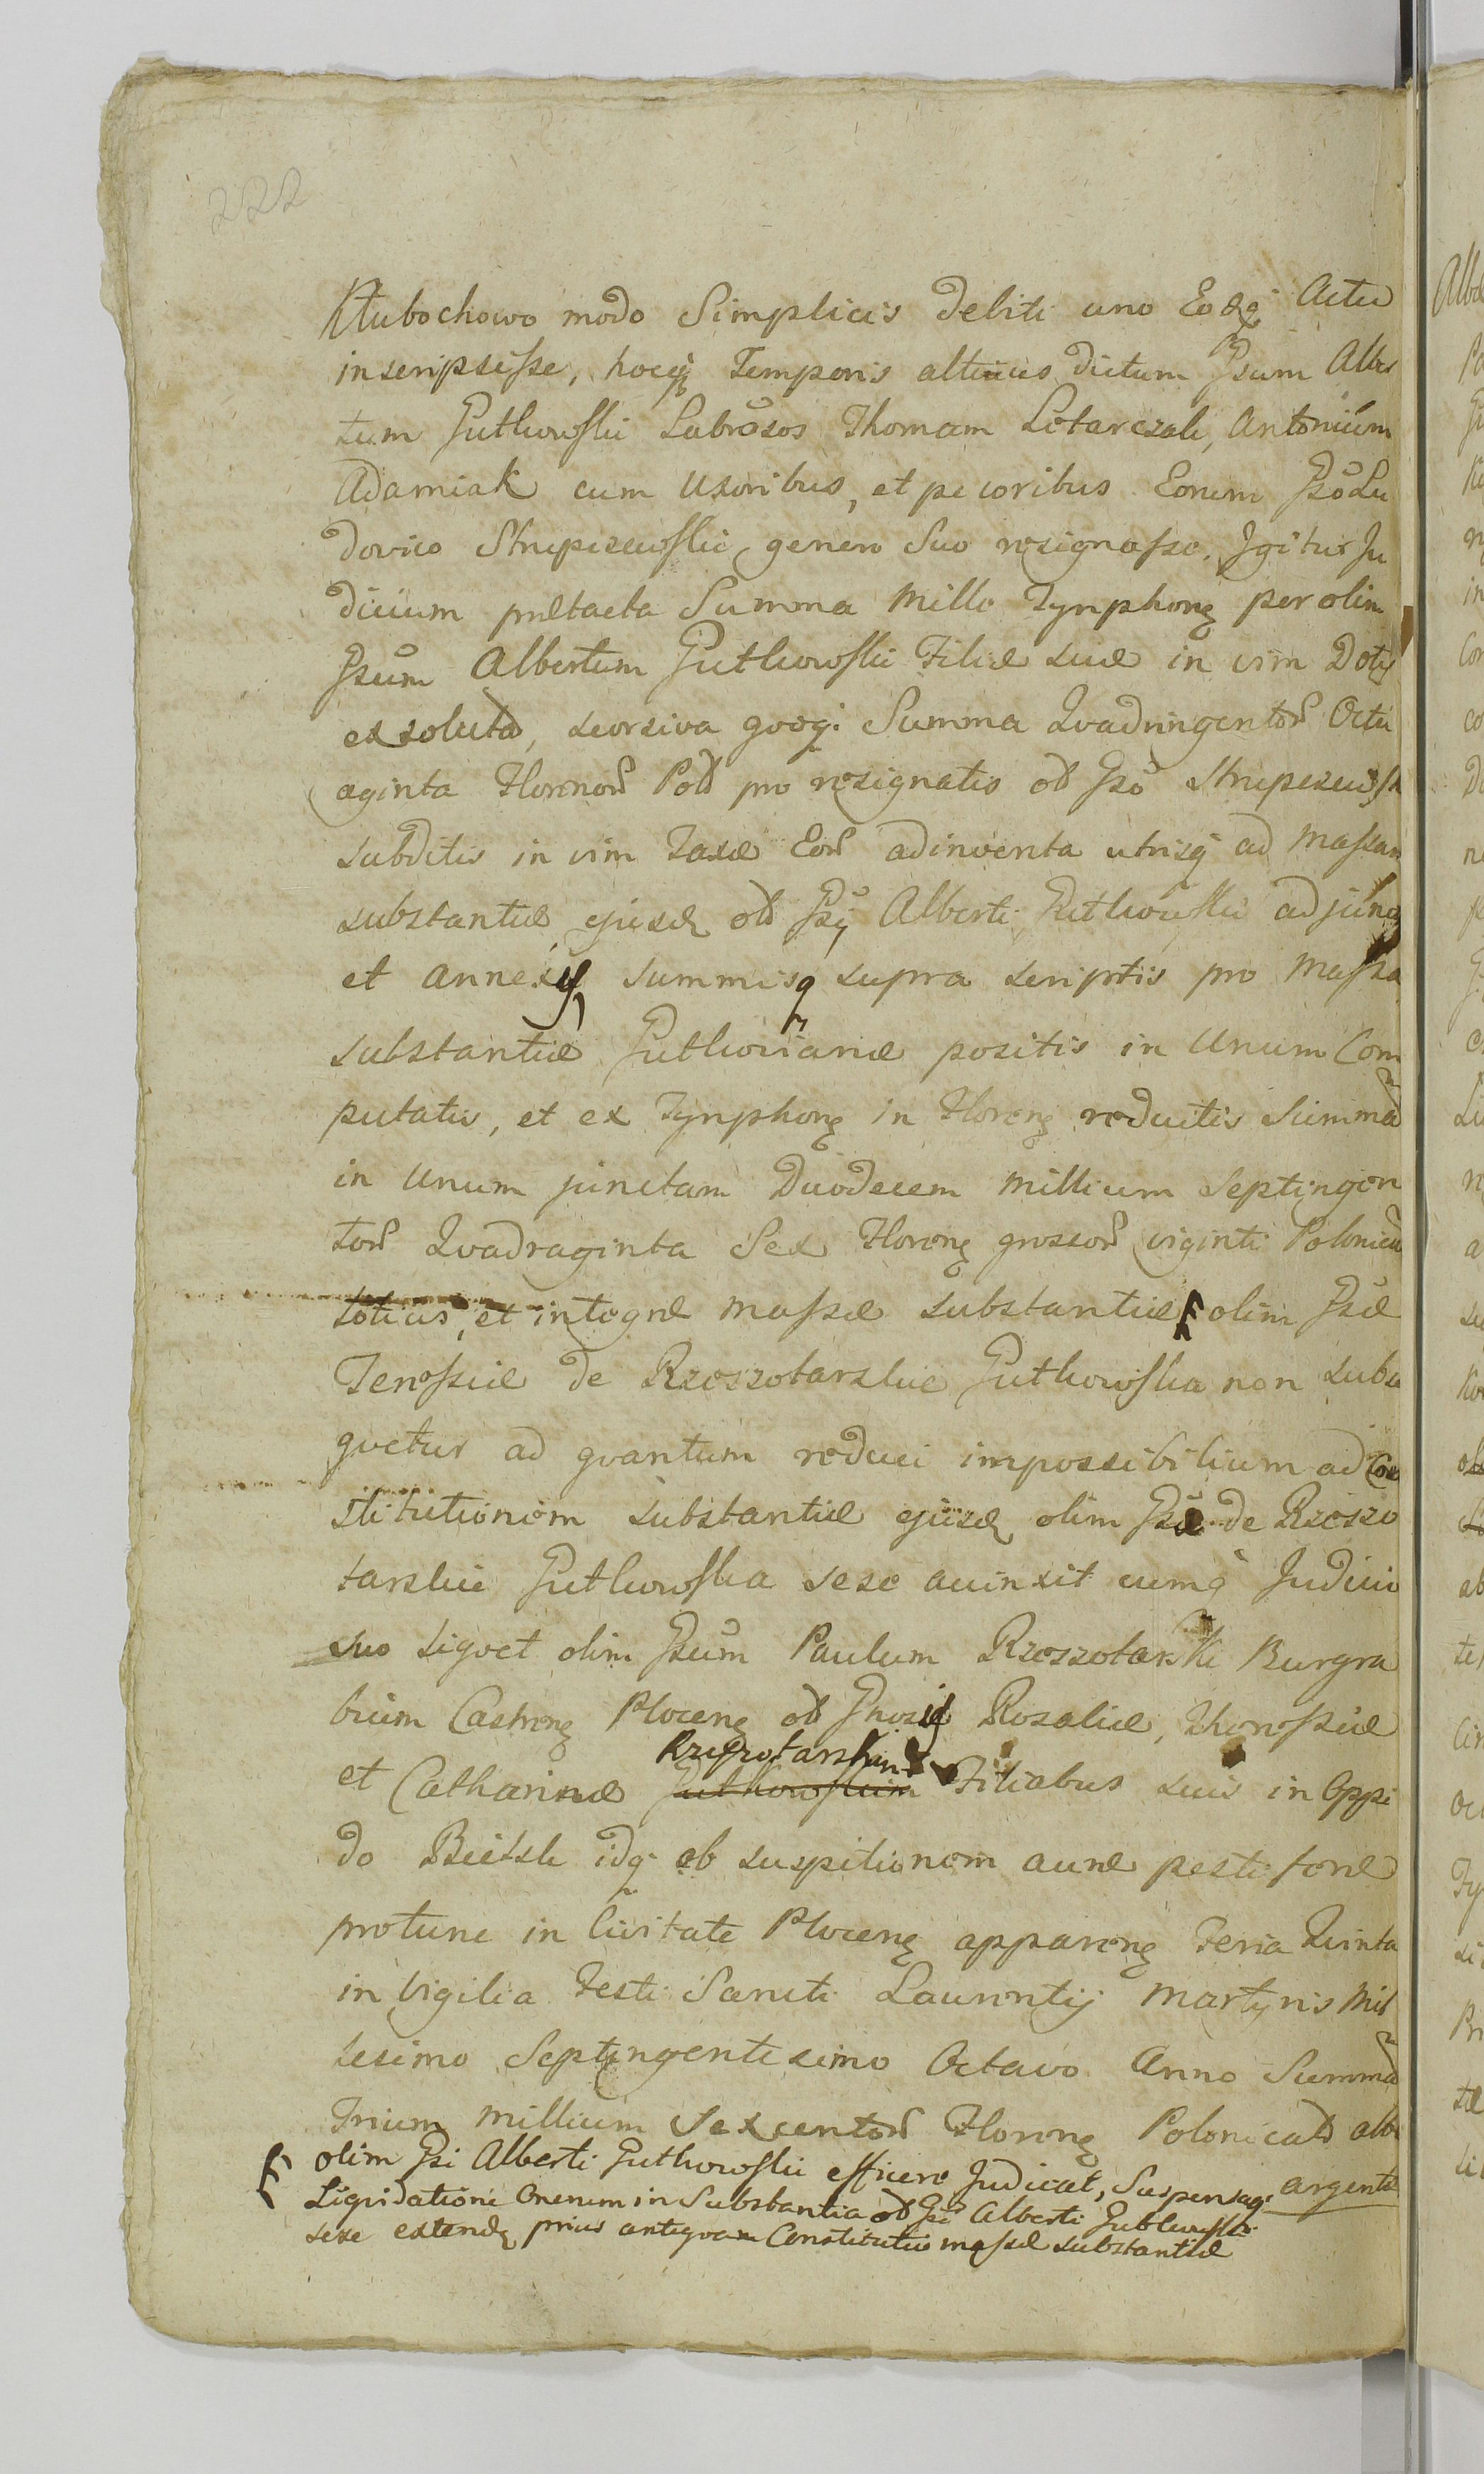 222
Kłubochowo modo Simplicis debiti uno Eodq Actu
inscripsisse, hocq Temporis altius dictum Gsum Alber
tum Gutkowski Labrosos Thomam Letarczak, Antonium
Adamiak cum Uxoribus, et pecoribus Eorum Gso Lu
dovico Strupczewski genero Suo resignasse. Igitur Ju
dicium prætacta Summa Mille Tynphong per olim
Gsum Albertum Gutkowski Filiæ suæ in vim Dotis
exsoluta, seorsiva qvoq Summa Qvadringentor Octu
aginta Florenor Pol pro resignatis ab Gso Strupczewski
subditis in vim Taxæ Eor adinventa utrisq ad Massam
substantiæ ejusd ol Gsi Alberti Gutkowski adjunc
et annexis summisq supra scriptis pro Massa
substantiæ Gutkovianæ positis in Unum Com
putatis, et ex Tynphong in Floreng reductis Summa
in Unum junctam Duodecem Millium Septingen
tor Qvadraginta Sex Floreng grossor viginti Polonica
totius, et integræ Massæ substantiæ olim Gsæ
Teressiæ de Rzeszotarskie Gutkowska non subse
qvetur ad qvantum reduci impossibilium ad Con
stitutionem substantiæ ejusd olim Gsæ de Rzeszo
tarskie Gutkowska sese accinxit cumq Judicio
suo liqvet olim Gsum Paulum Rzeszotarski Burgra
bium Castreng Ploceng ol Gnosis Rosaliæ, Theressiæ
Rzeszotarskim
et Catharinæ Gutkowskim Filiabus suis in Oppi
do Bielsk idq ob suspitionem auræ pestiferæ
protunc in Civitate Ploceng appareng Feria Qvinta
in Vigilia Festi Sancti Laurentij Martyris Mil
lesimo Septingentesimo Octavo Anno Summa
Trium Millium Sexcentor Floreng Polonical albi
argenti
olim Gsi Alberti Gutkowski efficere Judicat, Suspensaq
Liqvidatione Onerum in Substantia ol Gsi Alberti Gutkowski
sese extend prius anteqvam Constitutio massæ substantiæ